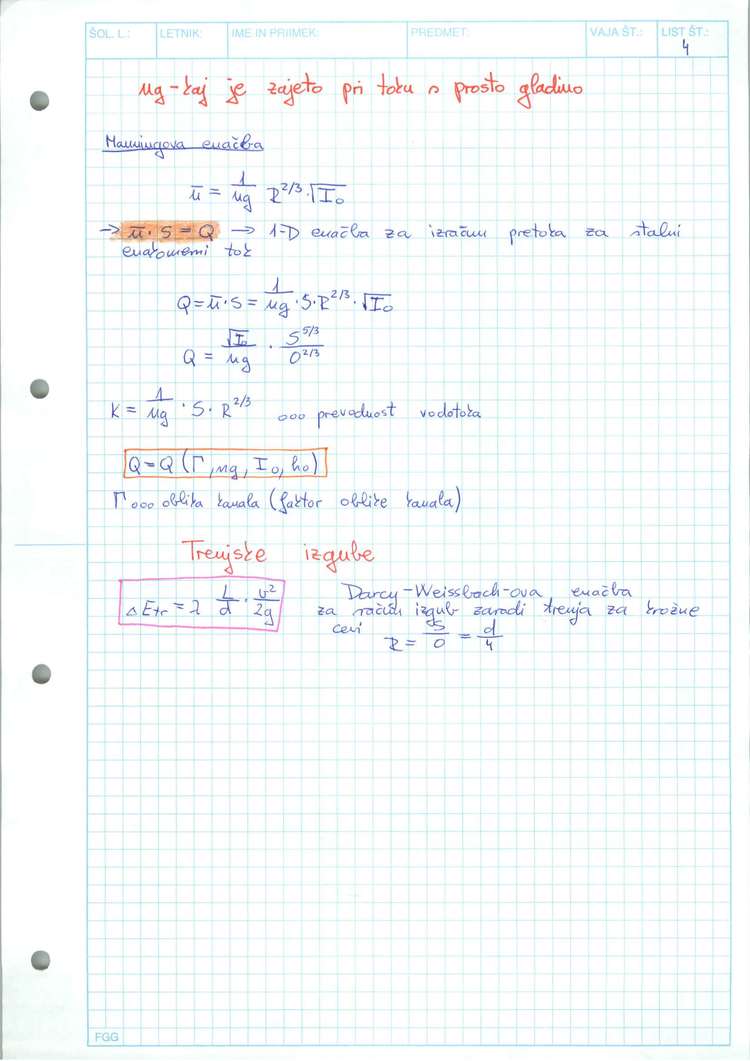 ŠOL. L.: LETNIK: IME IN PRIIMEK: PREDMET: VAJA ŠT.: LIST ŠT.:
4
ng - kaj je zajeto pri toku s prosto gladino
Manningova enačba
ū = 1/ng R^2/3 · √I₀
→ ū · S = Q → 1-D enačba za izračun pretoka za stalni
enakomerni tok
Q = ū · S = 1/ng · S · R^2/3 · √I₀
Q = √I₀/ng · S^5/3 / O^2/3
K = 1/ng · S · R^2/3 ooo prevodnost vodotoka
Q = Q (Γ, ng, I₀, h₀)
Γ ooo oblika kanala (faktor oblike kanala)
Trenjske izgube
ΔEtr = λ L/d · v²/2g Darcy-Weissbach-ova enačba
za račun izgub zaradi trenja za krožne
cevi R = S/O = d/4
FGG